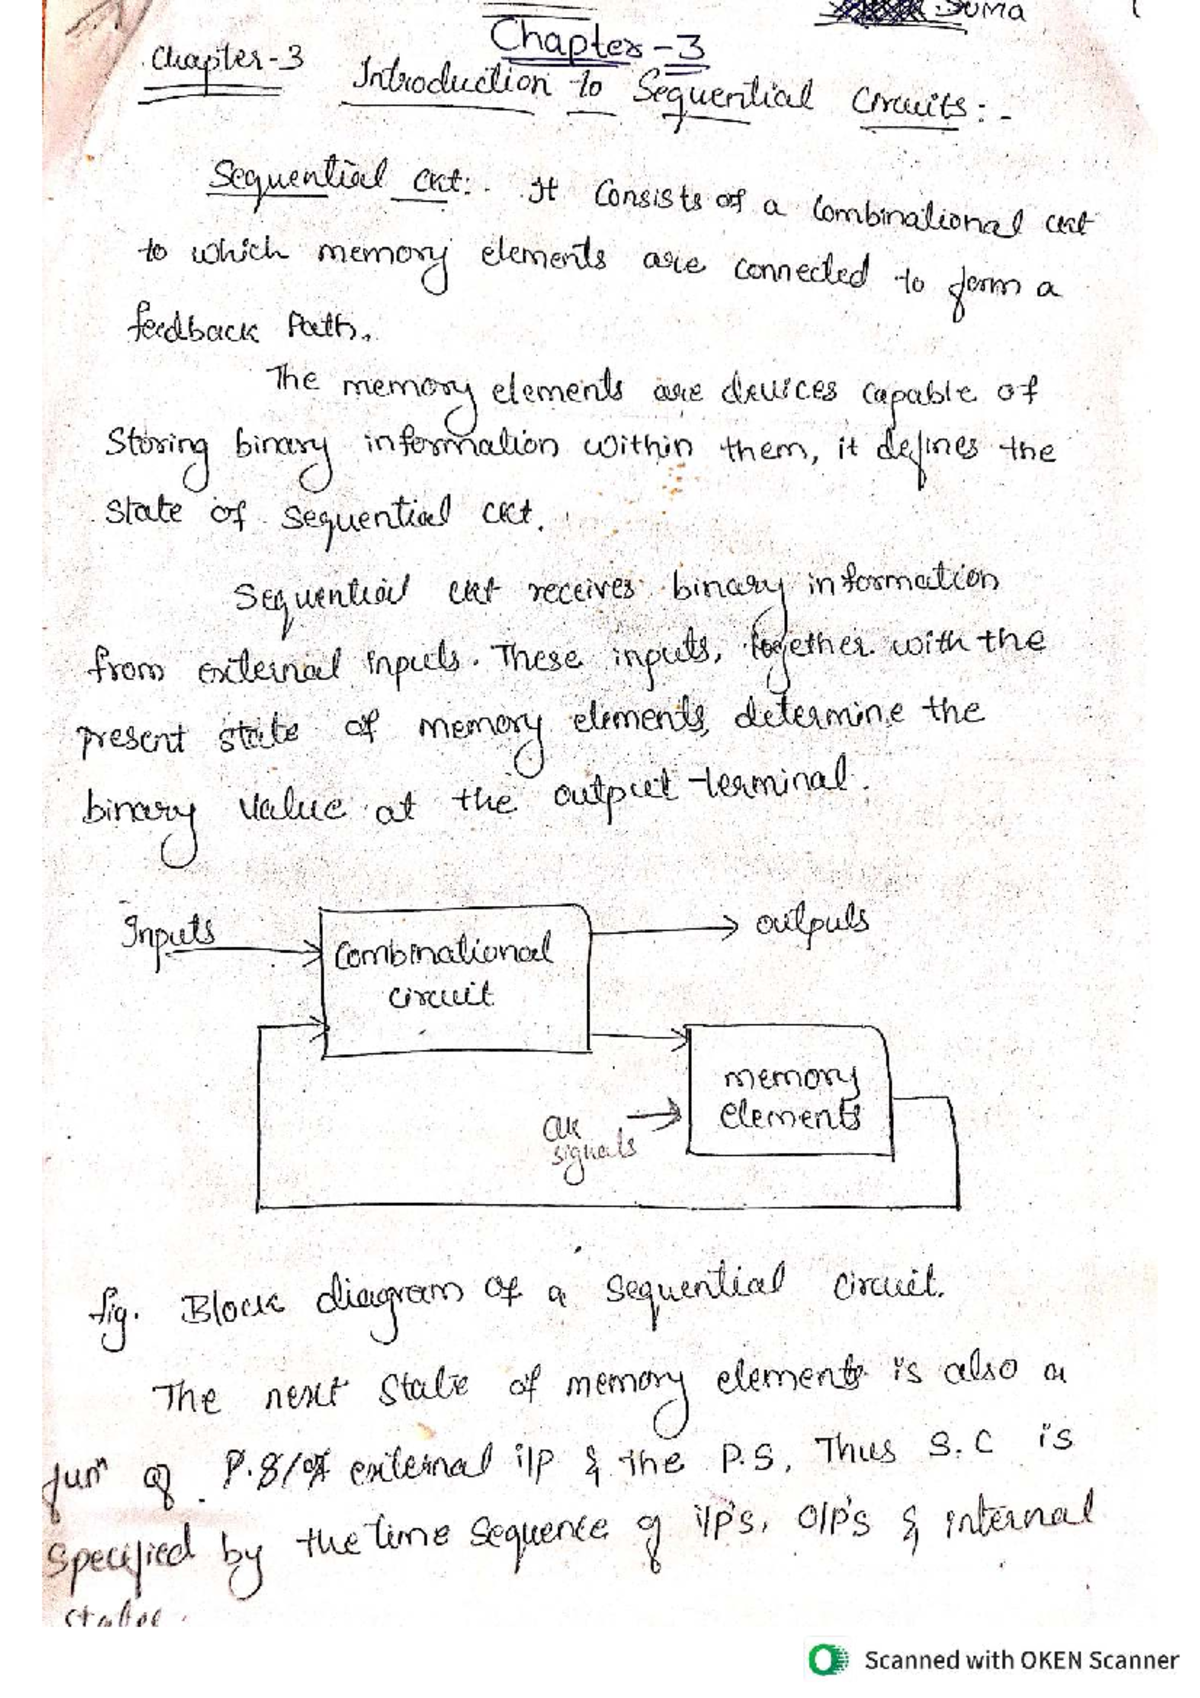 Suma 1
Chapter-3
Chapter-3 Introduction to Sequential Circuits:-
Sequential ckt:. It consists of a combinational ckt
to which memory elements are connected to form a
feedback Path.
The memory elements are devices capable of
storing binary information within them, it defines the
state of sequential ckt.
Sequential ckt receives binary information
from external inputs. These inputs, together with the
present state of memory elements, determine the
binary value at the output terminal.
Inputs
Combinational
circuit
outputs
memory
elements
Clk
signals
fig. Block diagram of a sequential circuit.
The next state of memory elements is also a
funⁿ of external i/p & the P.S, Thus S.C is
specified by the time sequence of i/p's, O/P's & internal
states.
Scanned with OKEN Scanner